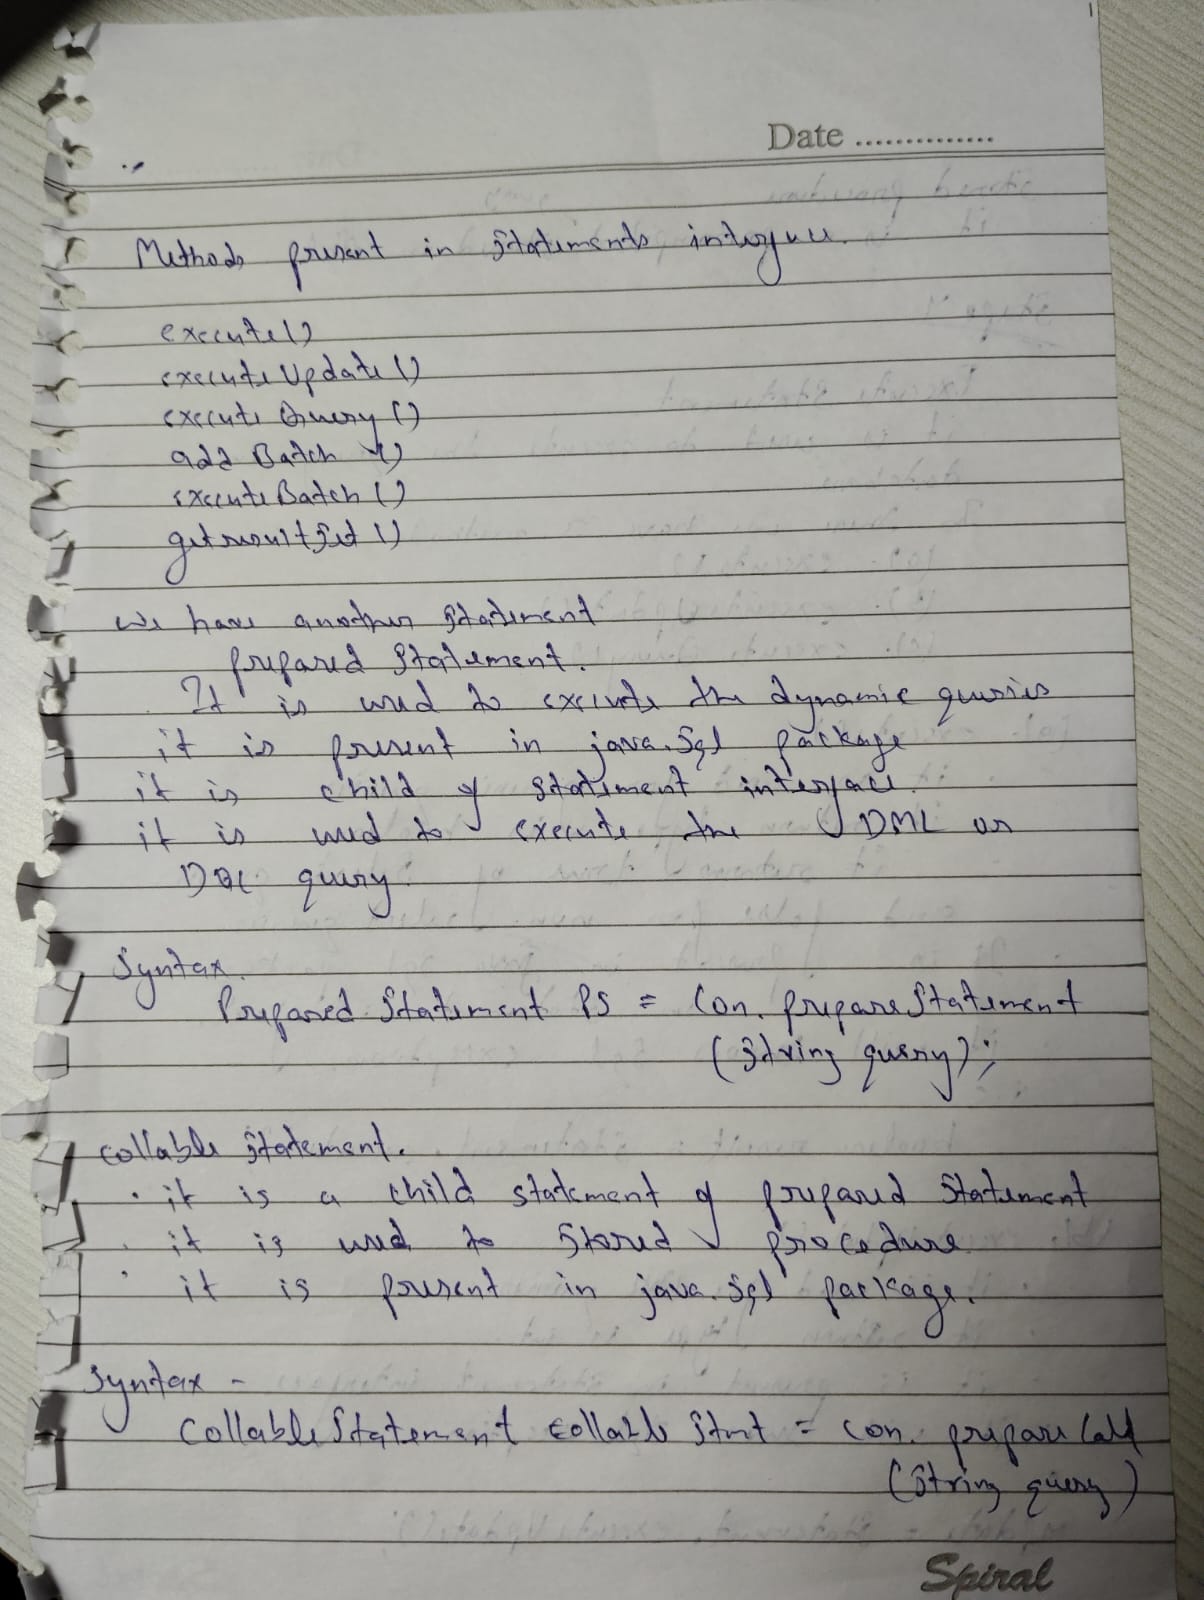 Date ..............
Methods present in Statements interface.
execute()
executeUpdate()
executeQuery()
addBatch()
executeBatch()
getresultSet()
we have another statement
prepared Statement.
It is used to execute the dynamic queries
it is present in java.sql package
it is child of statement interface.
it is used to execute the DML or
DQL query
Syntax.
Prepared Statement PS = Con. prepareStatement
(String query);
Collable Statement.
• it is a child statement of prepared Statement
• it is used to Stored procedure
• it is present in java.sql package.
Syntax -
CollableStatement collable Stmt = con. prepareCall
(String query)
Spiral